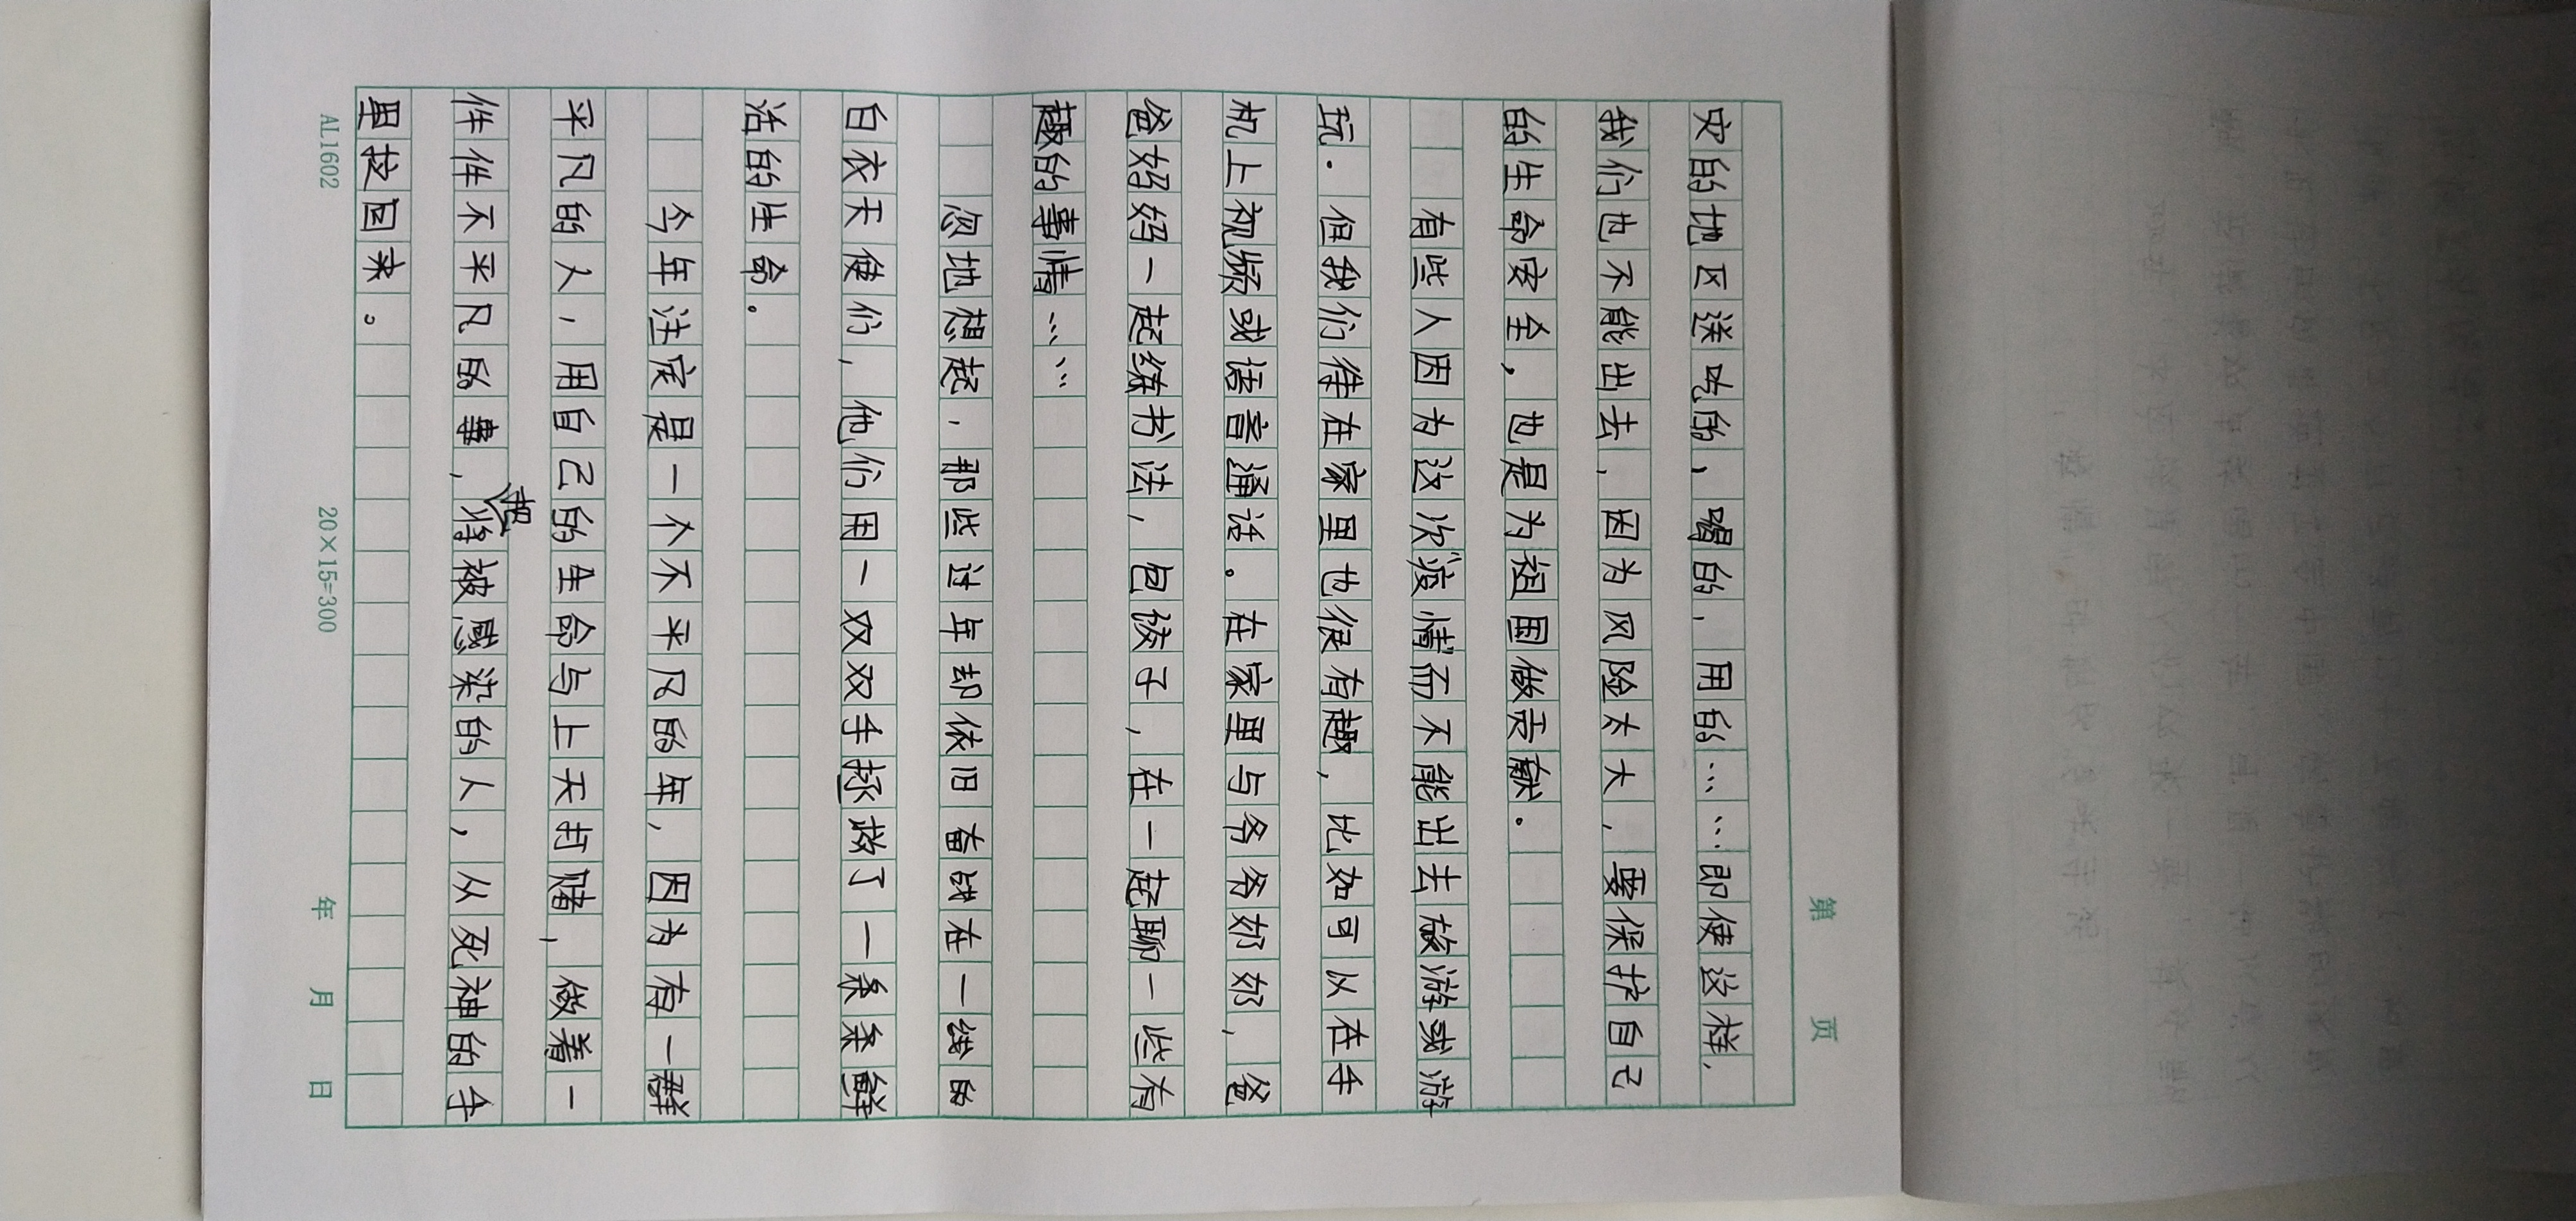 第 页
灾的地区送吃的，喝的，用的……即使这样，
我们也不能出去，因为风险太大，要保护自己
的生命安全，也是为祖国做贡献。
有些人因为这次"疫情"而不能出去旅游或游
玩．但我们待在家里也很有趣，比如可以在手
机上视频或语音通话。在家里与爷爷奶奶，爸
爸妈妈一起练书法，包饺子，在一起聊一些有
趣的事情……
忽地想起，那些过年却依旧奋战在一线的
白衣天使们，他们用一双双手拯救了一条条鲜
活的生命。
今年注定是一个不平凡的年，因为有一群
平凡的人，用自己的生命与上天打赌，做着一
件件不平凡的事，把将被感染的人，从死神的手
里拉回来。
AL1602 20×15=300 年 月 日